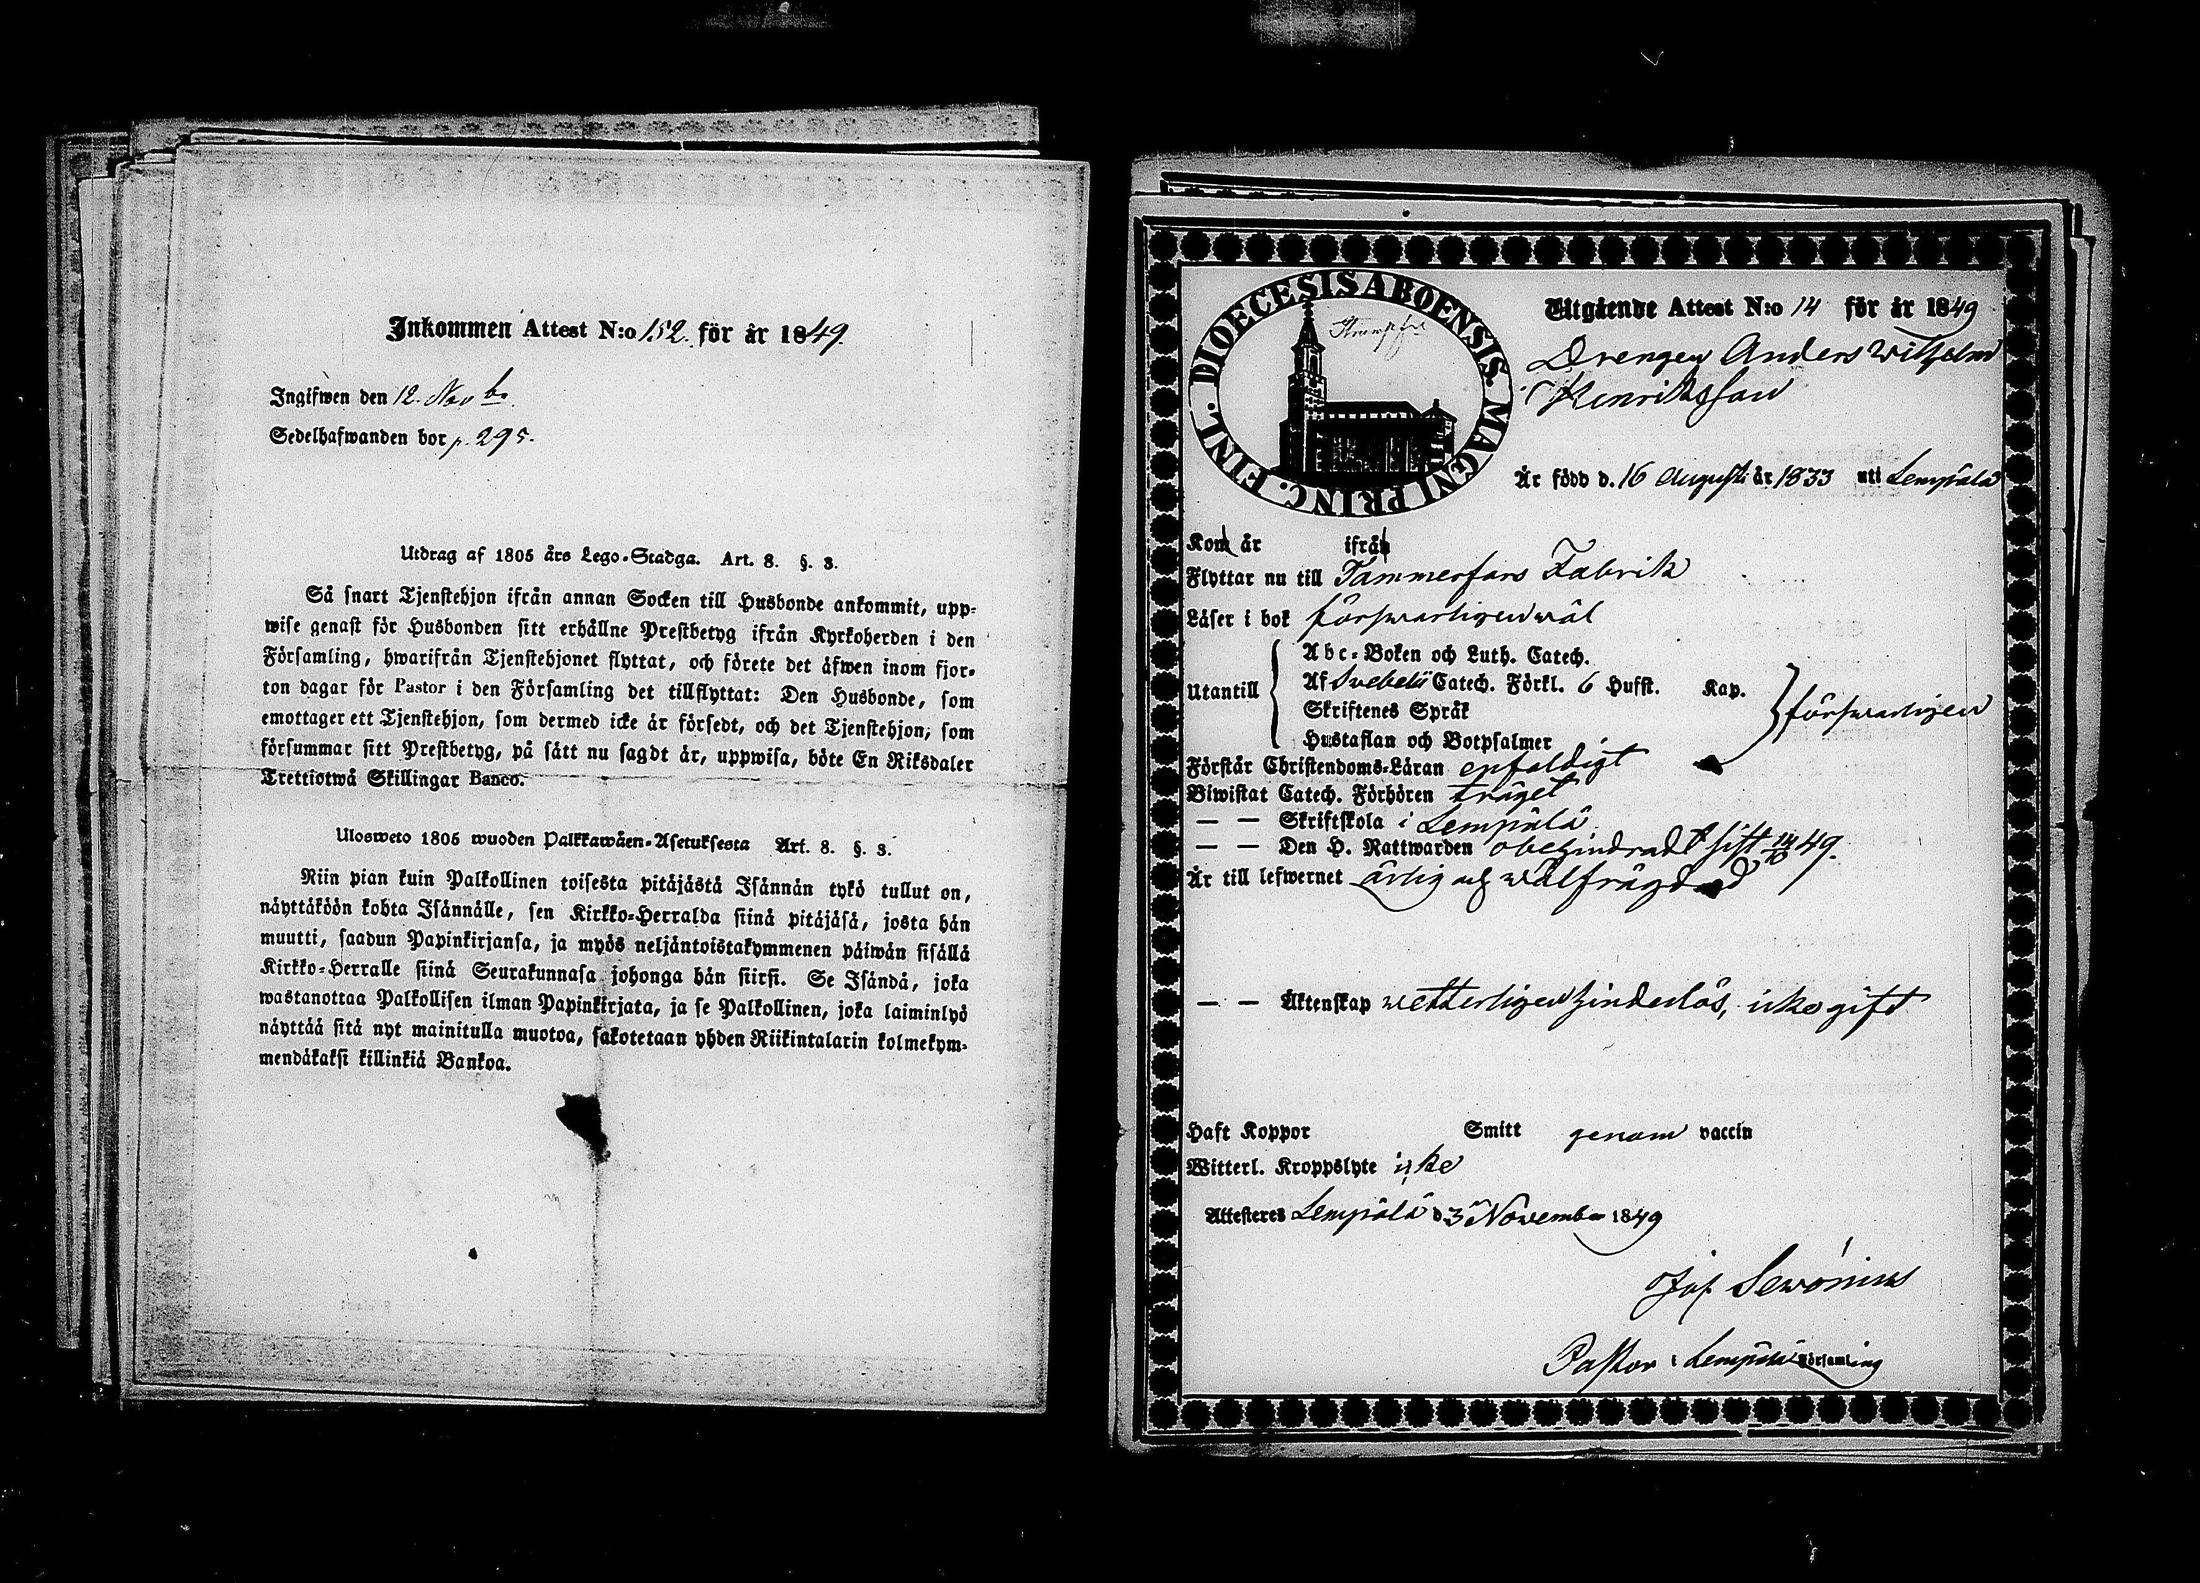 Inkommen Attest N:o 152. för år 1849.
Ingifwen den 12. Novbr.
Sedelhafwanden bor p. 295.
Utdrag af 1805 års Lego-Stadga. Art. 8. §. 3.
Så snart Tjenstehjon ifrån annan Socken till Husbonde ankommit, upp-
wise genast för Husbonden sitt erhållne Prestbetyg ifrån Kyrkoherden i den
Församling, hwarifrån Tjenstehjonet flyttat, och förete det äfwen inom fjor-
ton dagar för Pastor i den Församling det tillflyttat: Den Husbonde, som
emottager ett Tjenstehjon, som dermed icke är försedt, och det Tjenstehjon, som
försummar sitt Prestbetyg, på sätt nu sagdt är, uppwisa, böte En Riksdaler
Trettiotwå Skillingar Banco.
Ulosweto 1805 wuoden Palkkawäen-Asetuksesta Art. 8. §. 3.
Niin pian kuin Palkollinen toisesta pitäjästä Isännän tykö tullut on,
näyttäköön kohta Isännälle, sen Kirkko-Herralda siinä pitäjäsä, josta hän
muutti, saadun Papinkirjansa, ja myös neljäntoistakymmenen päiwän sisällä
Kirkko-Herralle siinä Seurakunnasa johonga hän siirsi. Se Isändä, joka
wastanottaa Palkollisen ilman Papinkirjata, ja se Palkollinen, joka laiminlyö
näyttää sitä nyt mainitulla muotoa, sakotetaan yhden Riikintalarin kolmekym-
mendäkaksi killinkiä Bankoa.
DIOECESIS ABOENSIS MAGNI PRINC. FINL.
Utgående Attest N:o 14 för år 1849
Drengen Anders Wilhelm
Henriksson
Är född d. 16 Augusti år 1833 uti Lempälä
Kom år ifrån
Flyttar nu till Tammerfors Fabrik
Läser i bok förswarligen wäl
Utantill
Abc-Boken och Luth. Catech.
Af Svebelii Catech. Förkl. 6 Hufst. Kap.
Skriftenes Språk
Hustaflan och Botpsalmer
förswarligen
Förstår Christendoms-Läran enfaldigt
Biwistat Catech. Förhören träget
— — Skriftskola i Lempälä
— — Den H. Nattwarden obehindradt sist 14/10 49.
Är till lefwernet ärlig och wälfrägdad
— — Äktenskap wetterligen hinderlös, icke gift
Haft Koppor Smitt genom vaccin
Witterl. Kroppslyte icke
Attesteres Lempälä d. 3 November 1849
Jos. Sewónius
Pastor i Lempälä Församling